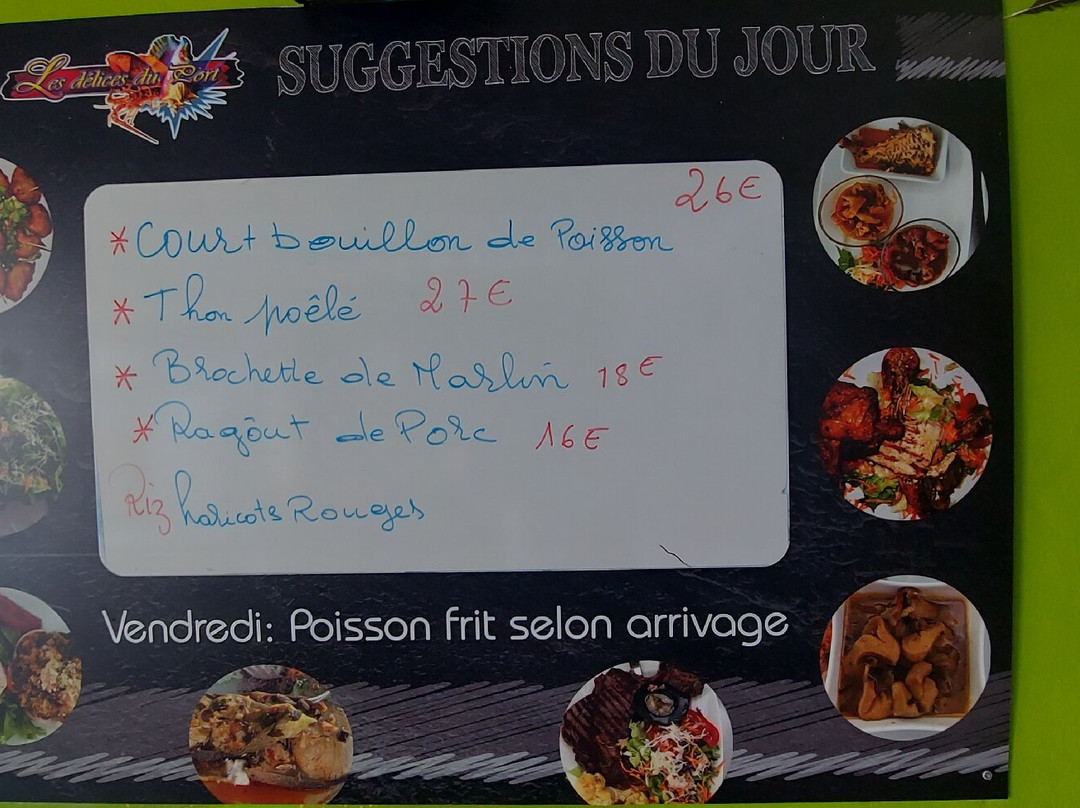 Les délices du Port
SUGGESTIONS DU JOUR
26€
* Court bouillon de Poisson
* Thon poêlé 27€
* Brochette de Marlin 18€
* Ragôut de Porc 16€
Riz haricots Rouges
Vendredi: Poisson frit selon arrivage